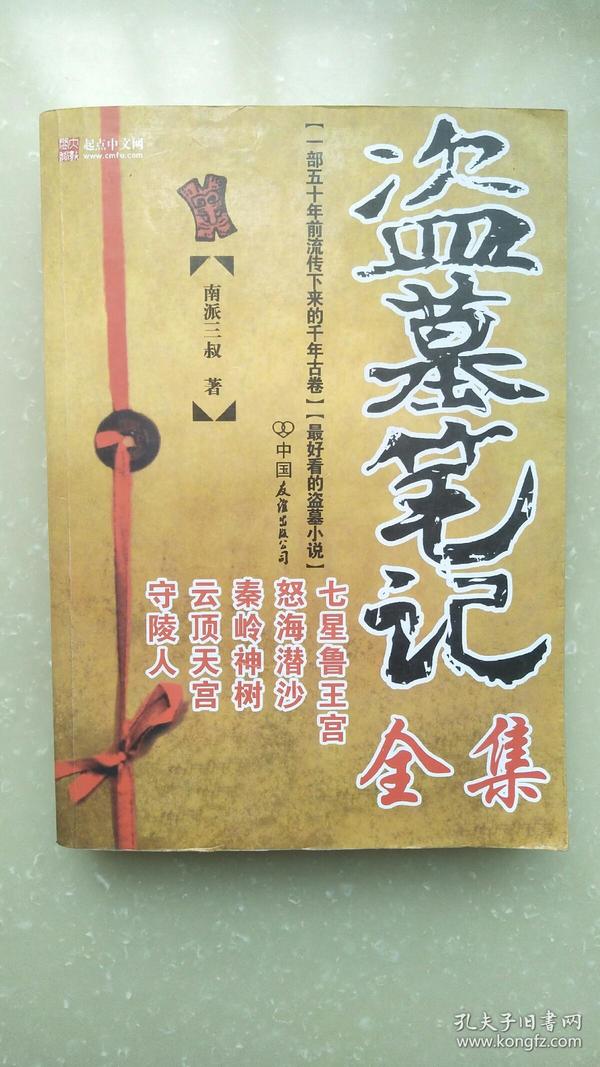 盗墓笔记
全集
【一部五十年前流传下来的千年古卷】【最好看的盗墓小说】
起点中文网
www.cmfu.com
【南派三叔 著】
中国友谊出版公司
七星鲁王宫
怒海潜沙
秦岭神树
云顶天宫
守陵人
孔夫子旧书网
www.kongfz.com